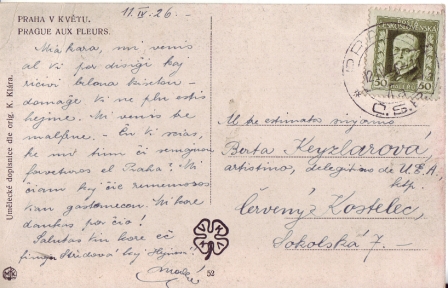 PRAHA V KVĚTU.
PRAGUE AUX FLEURS.
11.IV.26.–
Má kara, mi venis
al Vi por diriĝi kaj
ricevi belana kiseton –
domaĝe Vi ne plu estis
hejme. Mi venis tre
malfrue. – Ĉu Vi scias,
ke mi tiun ĉi semajnon
forveturos el Praha? Mi
ĉiam kaj ĉie rememoros
Vian gastamecon. Mi kore
dankas por ĉio!
Salutas Vin kore eĉ
Umělecké dopisnice dle orig. K. Klára.
52
POŠTA
ČESKOSLOVENSKÁ
50
Č.S.R.
Tre estimata
Berta Keyzlarová,
artistino, delegitas de U.E.A.
ktp.
Červený Kostelec,
Sokolská 7.–